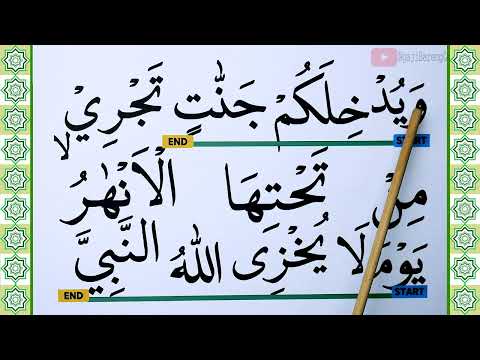 وَيُدْخِلَكُمْ جَنّٰتٍ تَجْرِيْ
END START
مِنْ تَحْتِهَا الْاَنْهٰرُۙ
يَوْمَ لَا يُخْزِى اللهُ النَّبِيَّ
END START